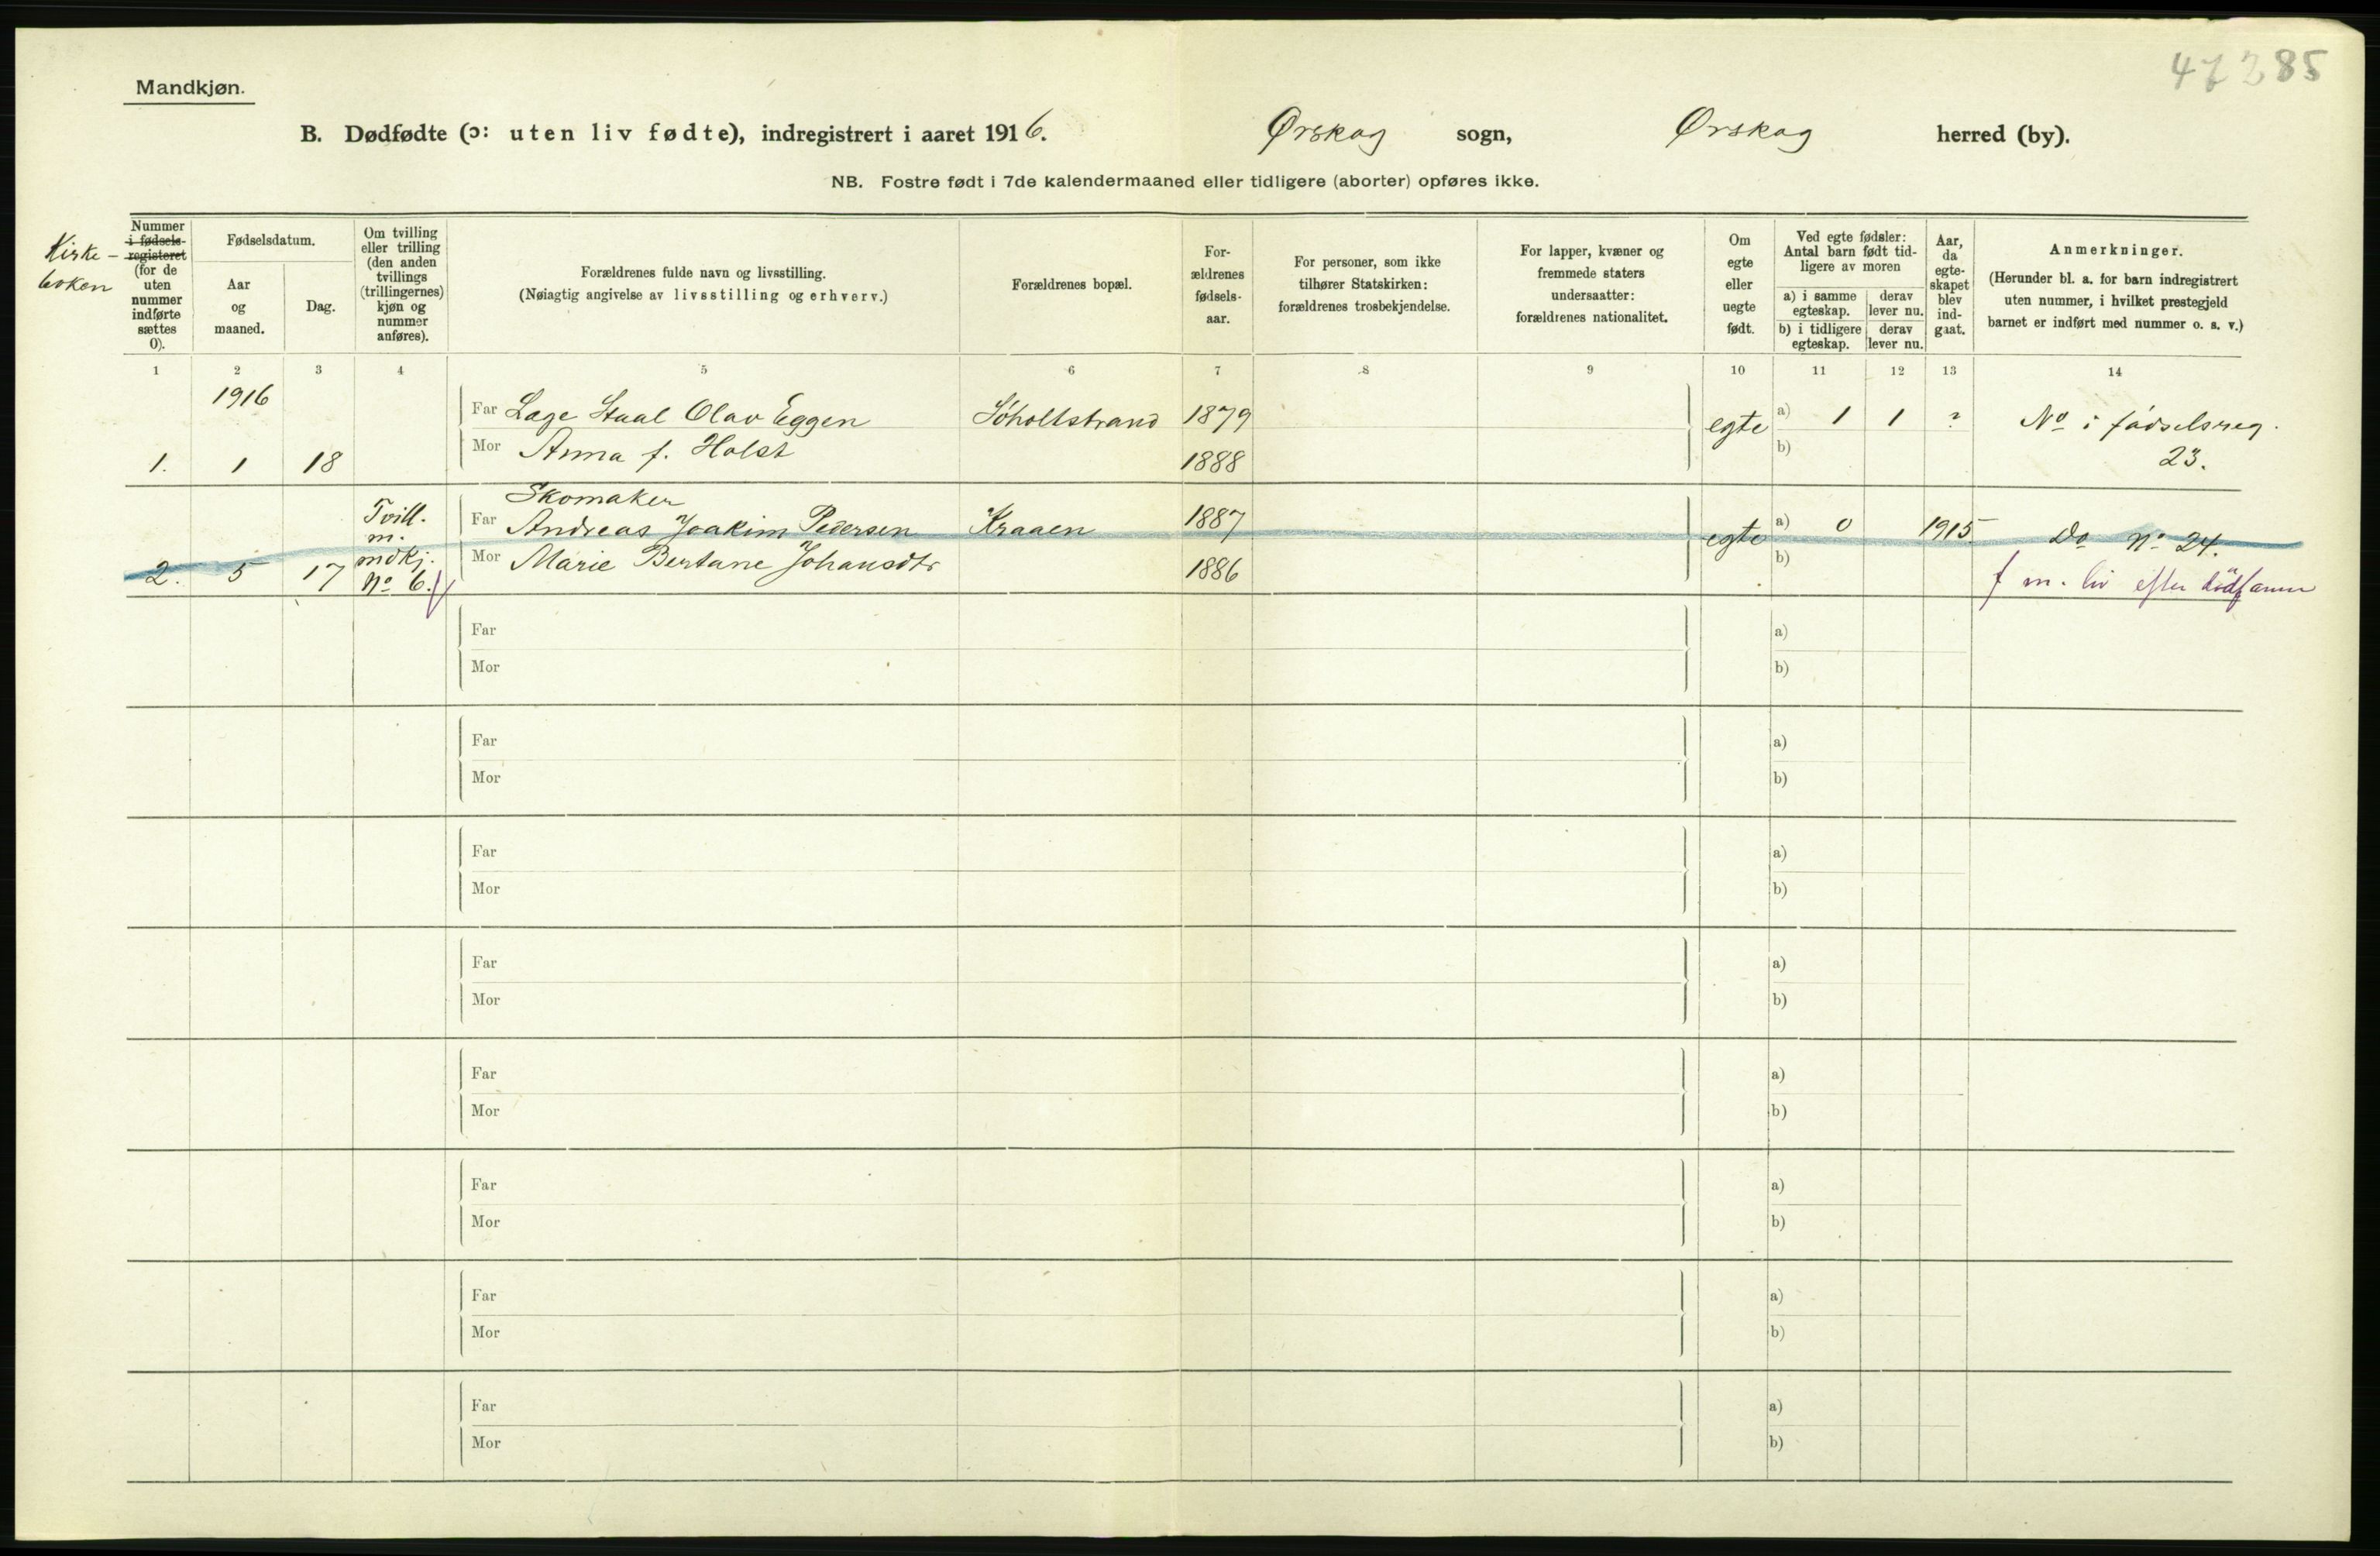 47285
Mandkjøn.
B. Dødfødte (ɔ: uten liv fødte), indregistrert i aaret 1916. Ørskog sogn, Ørskog herred (by).
NB. Fostre født i 7de kalendermaaned eller tidligere (aborter) opføres ikke.
Kirke-
boken
Nummer
i fødsels-
registeret
(for de
uten
nummer
indførte
sættes
0).
Fødselsdatum.
Aar
og
maaned.
Dag.
Om tvilling
eller trilling
(den anden
tvillings
(trillingernes)
kjøn og
nummer
anføres).
Forældrenes fulde navn og livsstilling.
(Nøiagtig angivelse av livsstilling og erhverv.)
Forældrenes bopæl.
For-
ældrenes
fødsels-
aar.
For personer, som ikke
tilhører Statskirken:
forældrenes trosbekjendelse.
For lapper, kvæner og
fremmede staters
undersaatter:
forældrenes nationalitet.
Om
egte
eller
uegte
født.
Ved egte fødsler:
Antal barn født tid-
ligere av moren
a) i samme
egteskap.
derav
lever nu.
b) i tidligere
egteskap.
derav
lever nu.
Aar,
da
egte-
skapet
blev
ind-
gaat.
Anmerkninger.
(Herunder bl. a. for barn indregistrert
uten nummer, i hvilket prestegjeld
barnet er indført med nummer o. s. v.)
1 2 3 4 5 6 7 8 9 10 11 12 13 14
1916
Far Lage Staal Olav Eggen Söholtstrand 1879 egte a) 1 1 ? No i fødselsreg.
1. 1 18 Mor Anna f. Holst 1888 b) 23.
Skomaker
Tvill. Far Andreas Joakim Pedersen Kraaen 1887 egte a) 0 1915 Do No 24.
m.
mdkj.
2. 5 17 No 6. Mor Marie Bertane Johansdtr 1886 b)
f m. liv efter
Far a)
Mor b)
Far a)
Mor b)
Far a)
Mor b)
Far a)
Mor b)
Far a)
Mor b)
Far a)
Mor b)
Far a)
Mor b)
Far a)
Mor b)